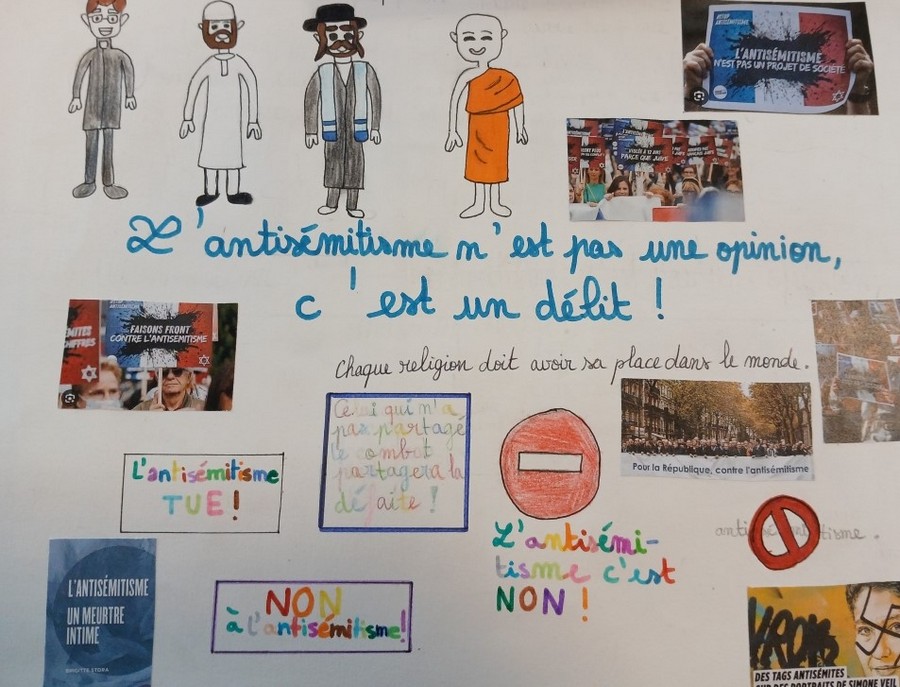 STOP
L'ANTISÉMITISME
N'EST PAS UN PROJET DE SOCIÉTÉ
VIOLÉE À 12 ANS
PARCE QUE JUIVE
L'antisémitisme n'est pas une opinion,
c'est un délit !
FAISONS FRONT
CONTRE L'ANTISÉMITISME
Chaque religion doit avoir sa place dans le monde.
Pour la République, contre l'antisémitisme
L'antisémitisme
TUE !
Celui qui m'a
pas partagé
le combat
partagera la
défaite !
antisémitisme.
L'antisémi-
tisme c'est
NON !
L'ANTISÉMITISME
UN MEURTRE
INTIME
BRIGITTE STORA
NON
à l'antisémitisme!
DES TAGS ANTISÉMITES
SUR DES PORTRAITS DE SIMONE VEIL